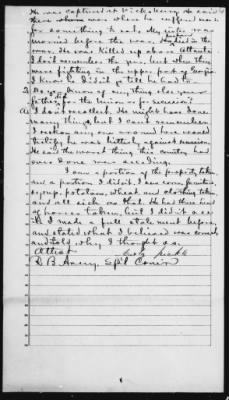 He was captured at Vicksburg. He said to
these women was where he suffered most
for something to eat. My sister was
married before the war. Her husband in the
war. He was killed up above Atlanta.
I don't remember the year, but when they
were fighting in the upper part of Georgia
I know he didn't go till he had to.
Q. Do you know of any thing else your
father did for the Union or for secession?
A. I don't recollect. He might have done
many things but I can't remember.
I reckon any one around here would
testify he was bitterly against secession.
He said the worst thing this country had
ever done was seceding.
I saw a portion of the property taken,
and a portion I didn't. I saw corn, furniture,
syrup, potatoes, wheat and clothing taken,
and all such as that. He had three head
of horses taken, but I didn't see
it. I made a full statement before
and stated what I believed was correct
and told why I thought so.
Attest
D B Henry, Sp'l Com'r